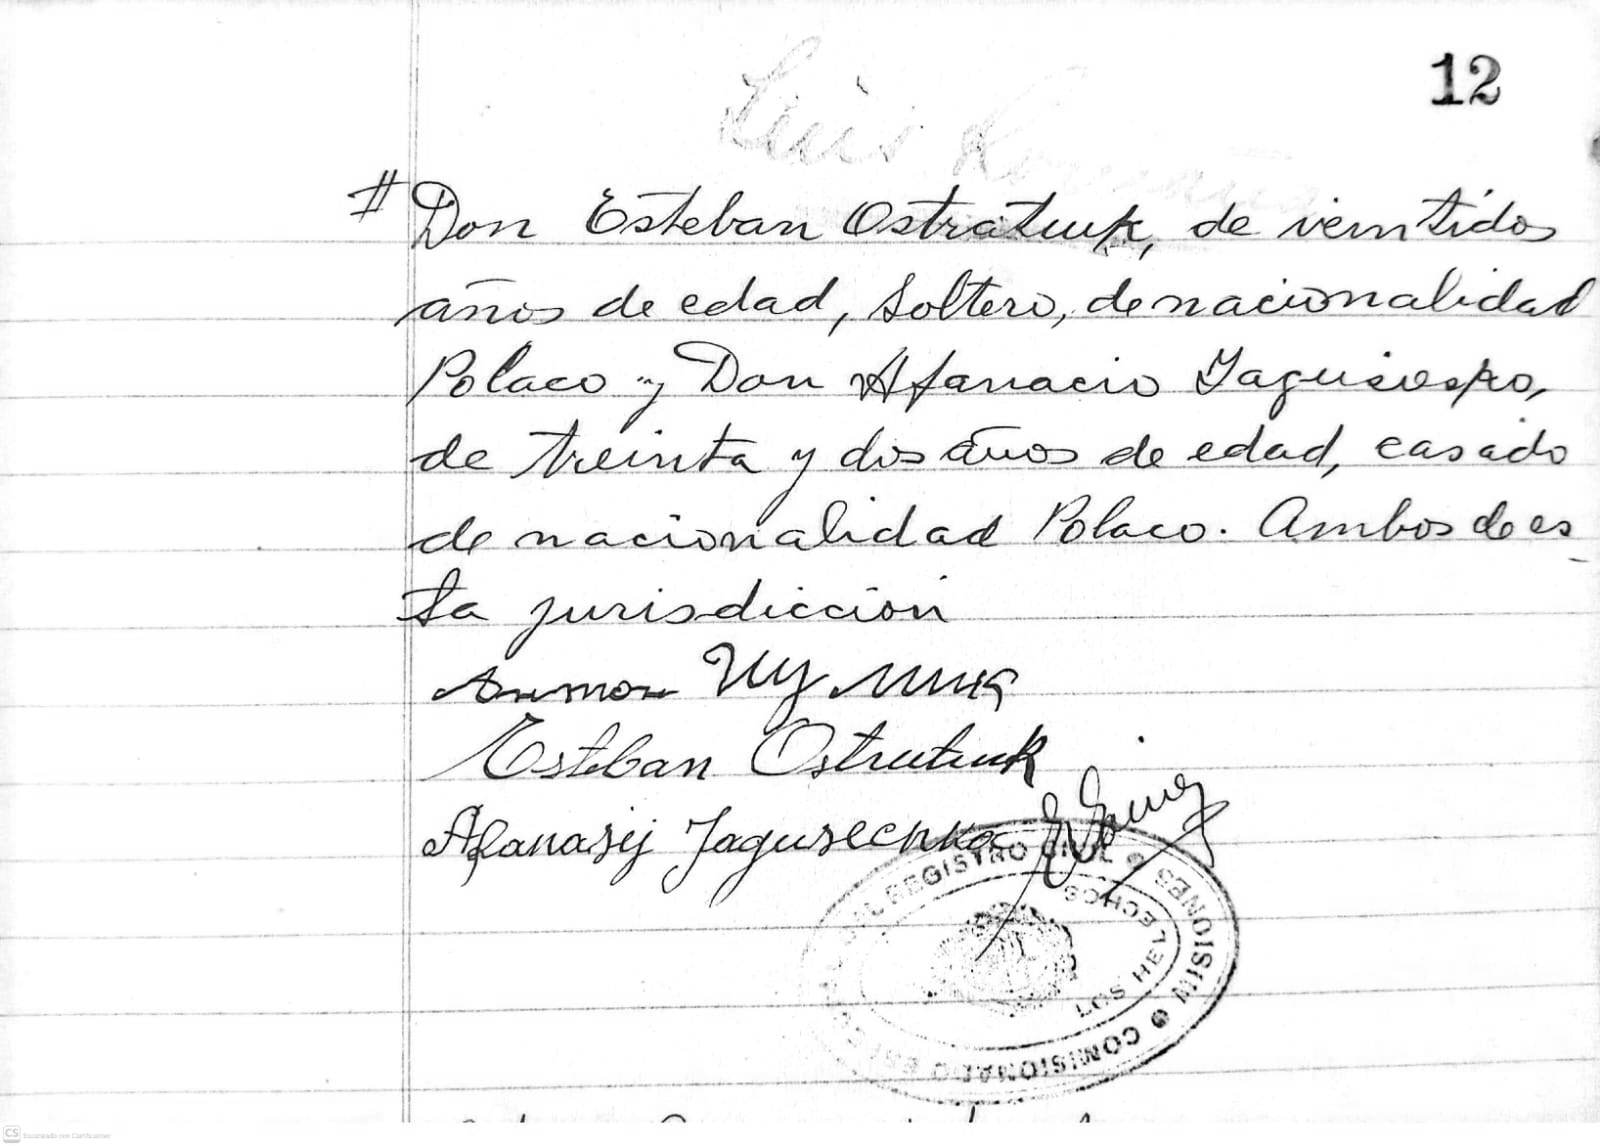 12
Luis
# Don Esteban Ostratiuk, de veintidos
años de edad, soltero, de nacionalidad
Polaco y Don Afanacio Yagusiespo,
de treinta y dos años de edad, casado
de nacionalidad Polaco. Ambos de es
ta jurisdiccion
Esteban Ostratiuk
Afanasij Jagusechko
REGISTRO CIVIL
MISIONES
COMISIONADO
LOS HELECHOS
CS Escaneado con CamScanner